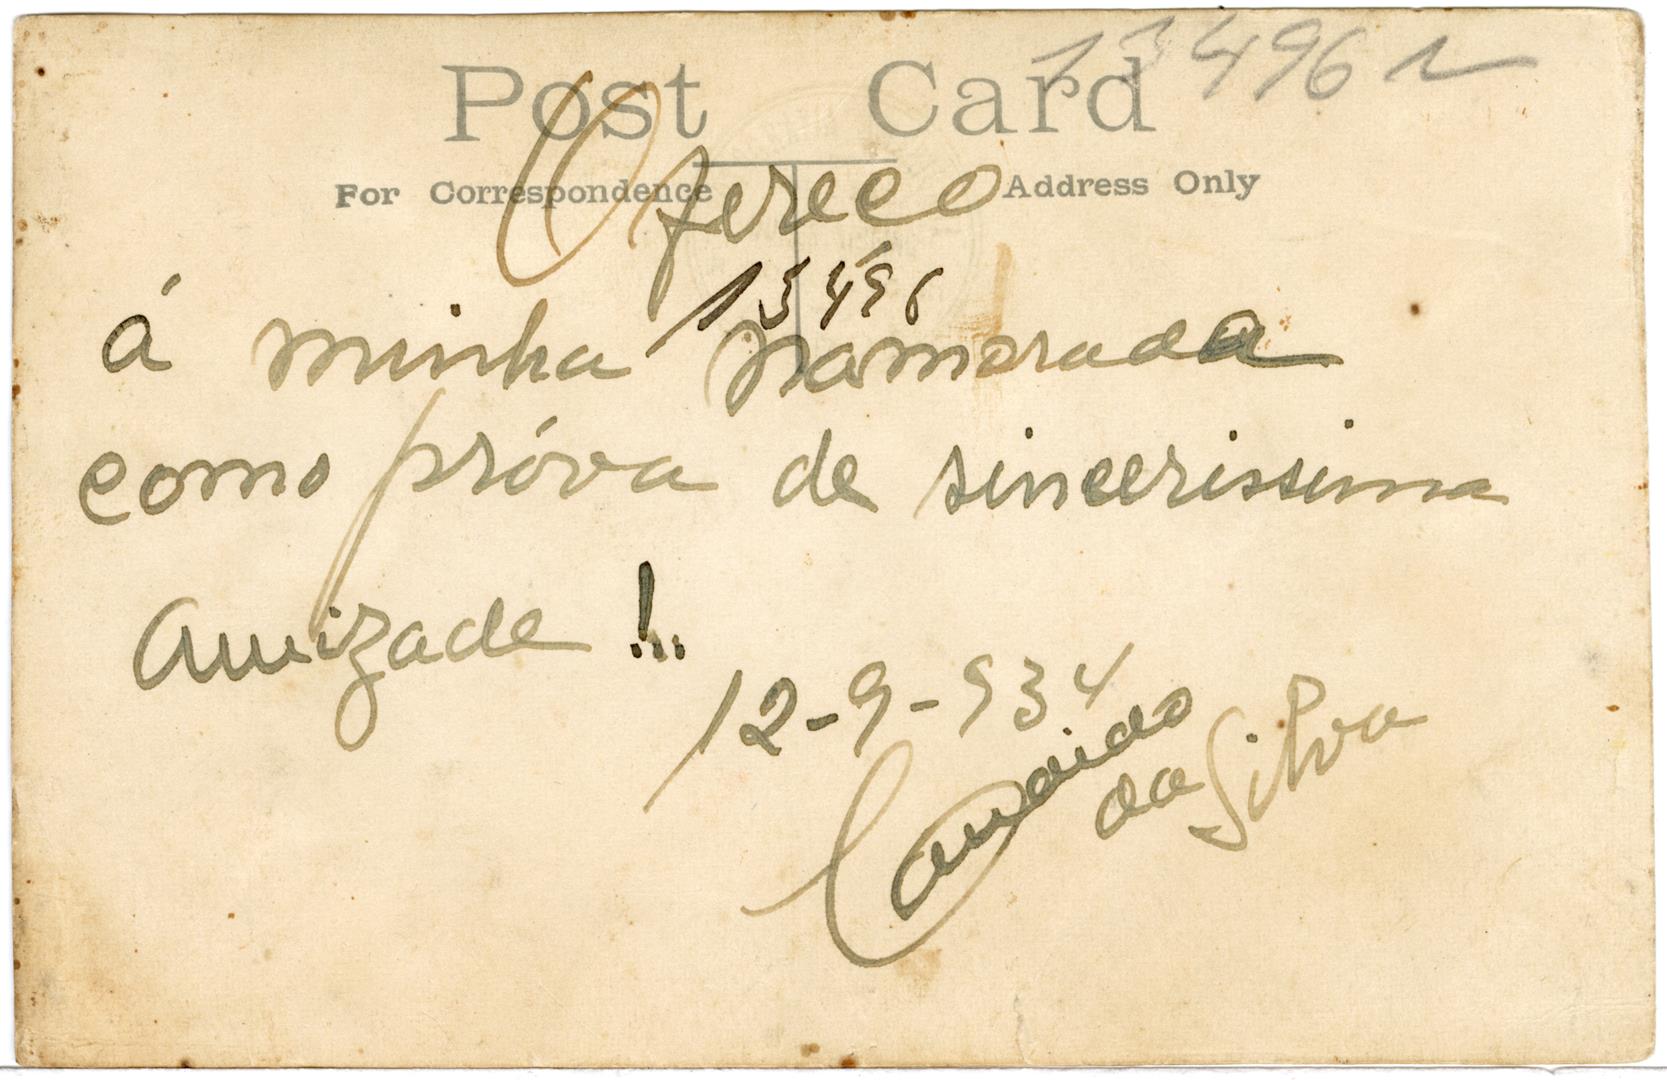 Post Card
13496
For Correspondence Address Only
Ofereço
13496
á minha namorada
como próva de sincerissima
amizade !...
12-9-934
Candido
da Silva